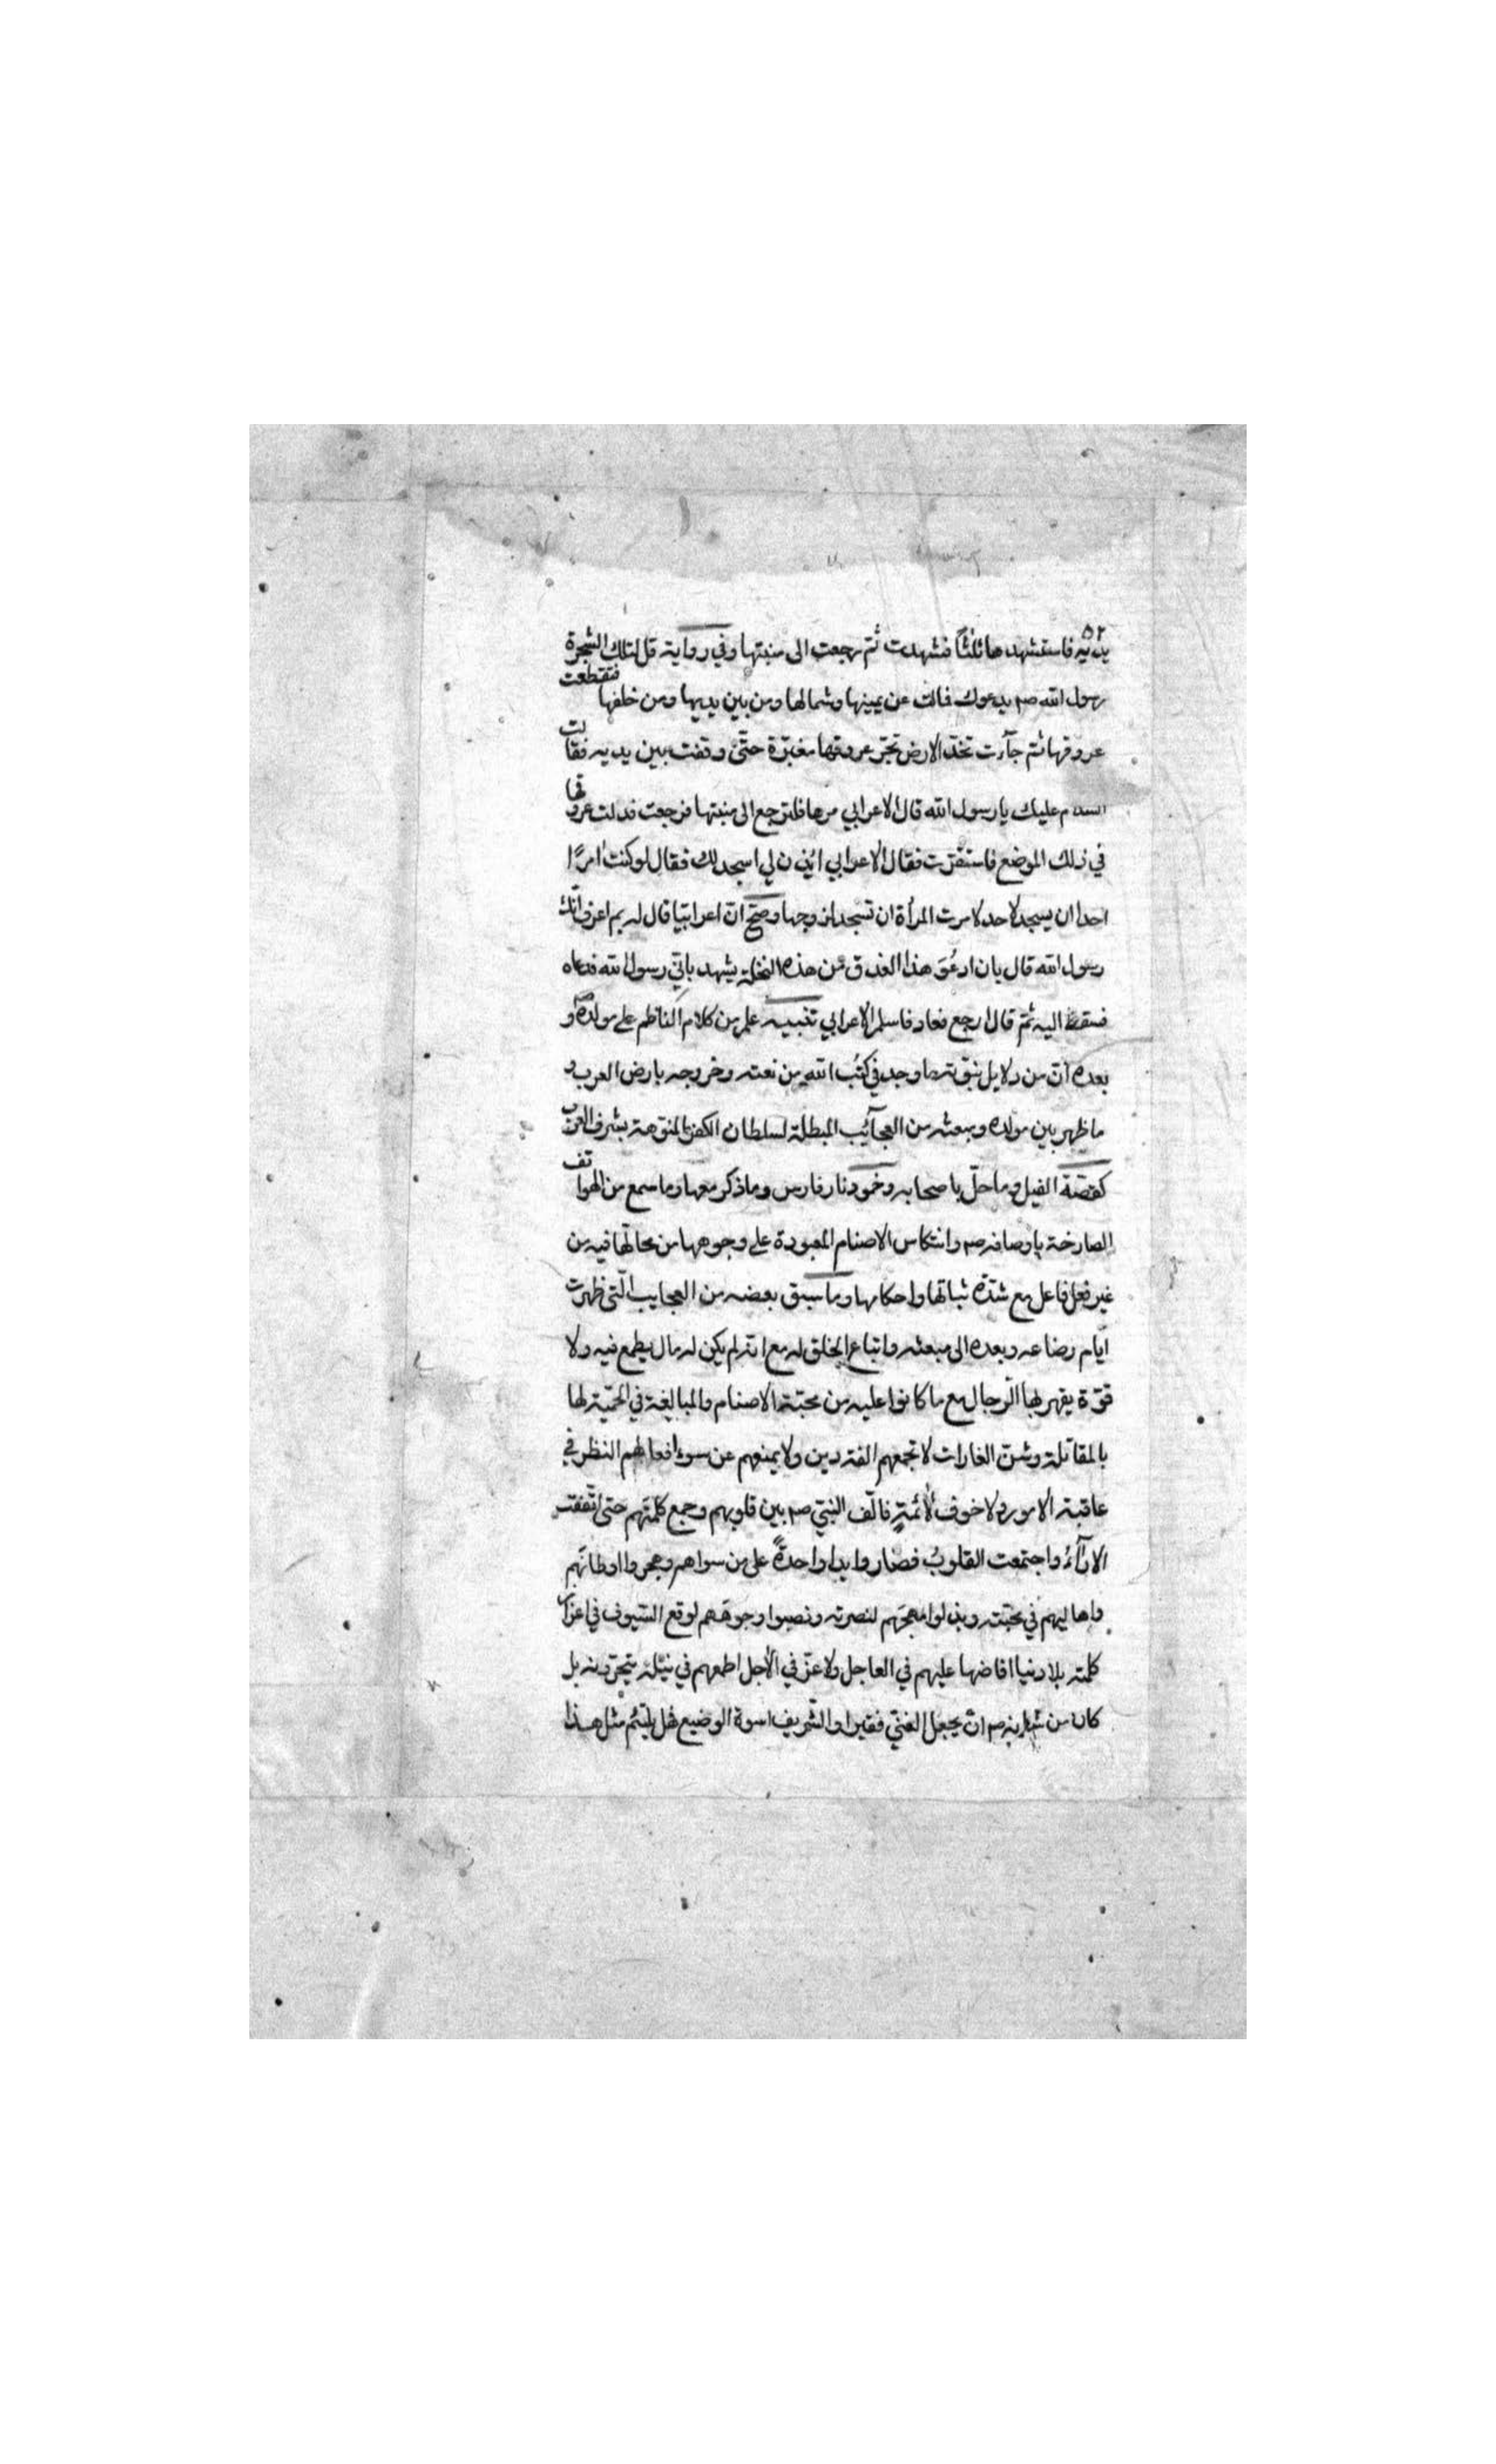 ٥٢
يديه فاستشهدها ثلثا فشهدت ثم رجعت الى منبتها وفي رواية قل لتلك الشجرة
رسول الله صم يدعوك فمالت عن يمينها وشمالها ومن بين يديها ومن خلفها فتقطعت
عروقها ثم جآءت تخد الارض تجر عروقها مغبرة حتى وقفت بين يديه فقالت
السلام عليك يا رسول الله قال الاعرابي مرها فلترجع الى منبتها فرجعت فدلت عروقها
في ذلك الموضع فاستقرت فقال الاعرابي ائذن لي اسجد لك فقال لو كنت امرا
احدا ان يسجد لاحد لامرت المرأة ان تسجد لزوجها وصح ان اعرابيا قال له بم اعرف انك
رسول الله قال بان ادعو هذا العذق من هذه النخلة يشهد باني رسول الله فدعاه
فسقط اليه ثم قال ارجع فعاد فاسلم الاعرابي تنبيه علم من كلام الناظم على مولده و
بعده ان من دلايل نبوته ما وجد في كتب الله من نعته وخروجه بارض العرب و
ما ظهر بين مولده ومبعثه من العجائب المبطلة لسلطان الكفر المنوهة بشرف العرب
كقصة الفيل وما حل باصحابه وخمود نار فارس وما ذكر معها وما سمع من الهواتف
الصارخة باوصافه صم وانتكاس الاصنام المعبودة على وجوهها من محالها فيه من
غير فعل فاعل مع شدة ثباتها واحكامها وما سبق بعضه من العجايب التى ظهرت
ايام رضاعه وبعده الى مبعثه واتباع الخلق له مع انه لم يكن له مال يطمع فيه ولا
قوة يقهر بها الرجال مع ما كانوا عليه من محبة الاصنام والمبالغة في الحمية لها
بالمقاتلة وشن الغارات لا تجمعهم الفة دين ولا يمنعهم عن سوء افعالهم النظر في
عاقبة الامور ولا خوف لائمة فالف النبي صم بين قلوبهم وجمع كلمتهم حتى اتفقت
الارآء واجتمعت القلوب فصاروا يدا واحدة على من سواهم وهجروا اوطانهم
واهاليهم في محبته وبذلوا مهجهم لنصرته ونصبوا وجوههم لوقع السيوف في اعزاز
كلمته بلا دنيا افاضها عليهم في العاجل ولا عز في الآجل اطمعهم في نيله بل
كان من شانه صم ان يجعل الغني فقيرا والشريف اسوة الوضيع فهل يلتئم مثل هذا